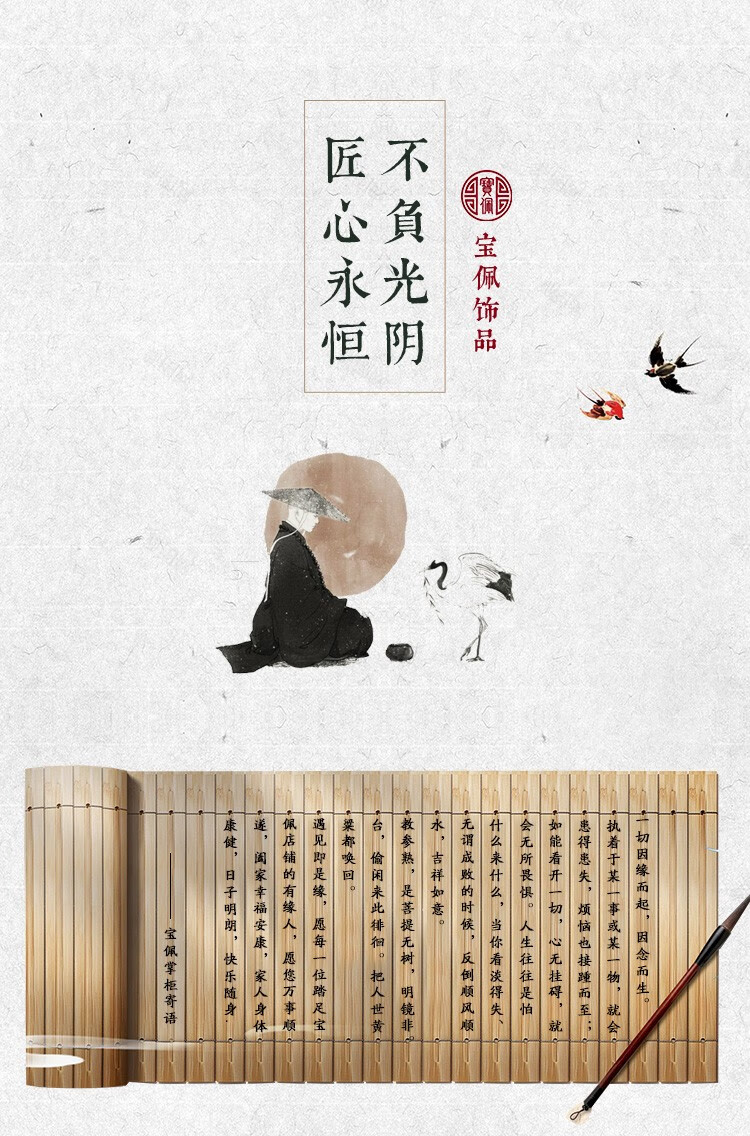 不負光阴
匠心永恒
寶佩
宝佩饰品
一切因缘而起，因念而生。
执着于某一事或某一物，就会
患得患失，烦恼也接踵而至；
如能看开一切，心无挂碍，就
会无所畏惧。人生往往是怕
什么来什么，当你看淡得失、
无谓成败的时候，反倒顺风顺
水，吉祥如意。
教参熟，是菩提无树，明镜非
台，偷闲来此徘徊。把人世黄
粱都唤回。
遇见即是缘，愿每一位踏足宝
佩店铺的有缘人，愿您万事顺
遂，阖家幸福安康，家人身体
康健，日子明朗，快乐随身.
——宝佩掌柜寄语